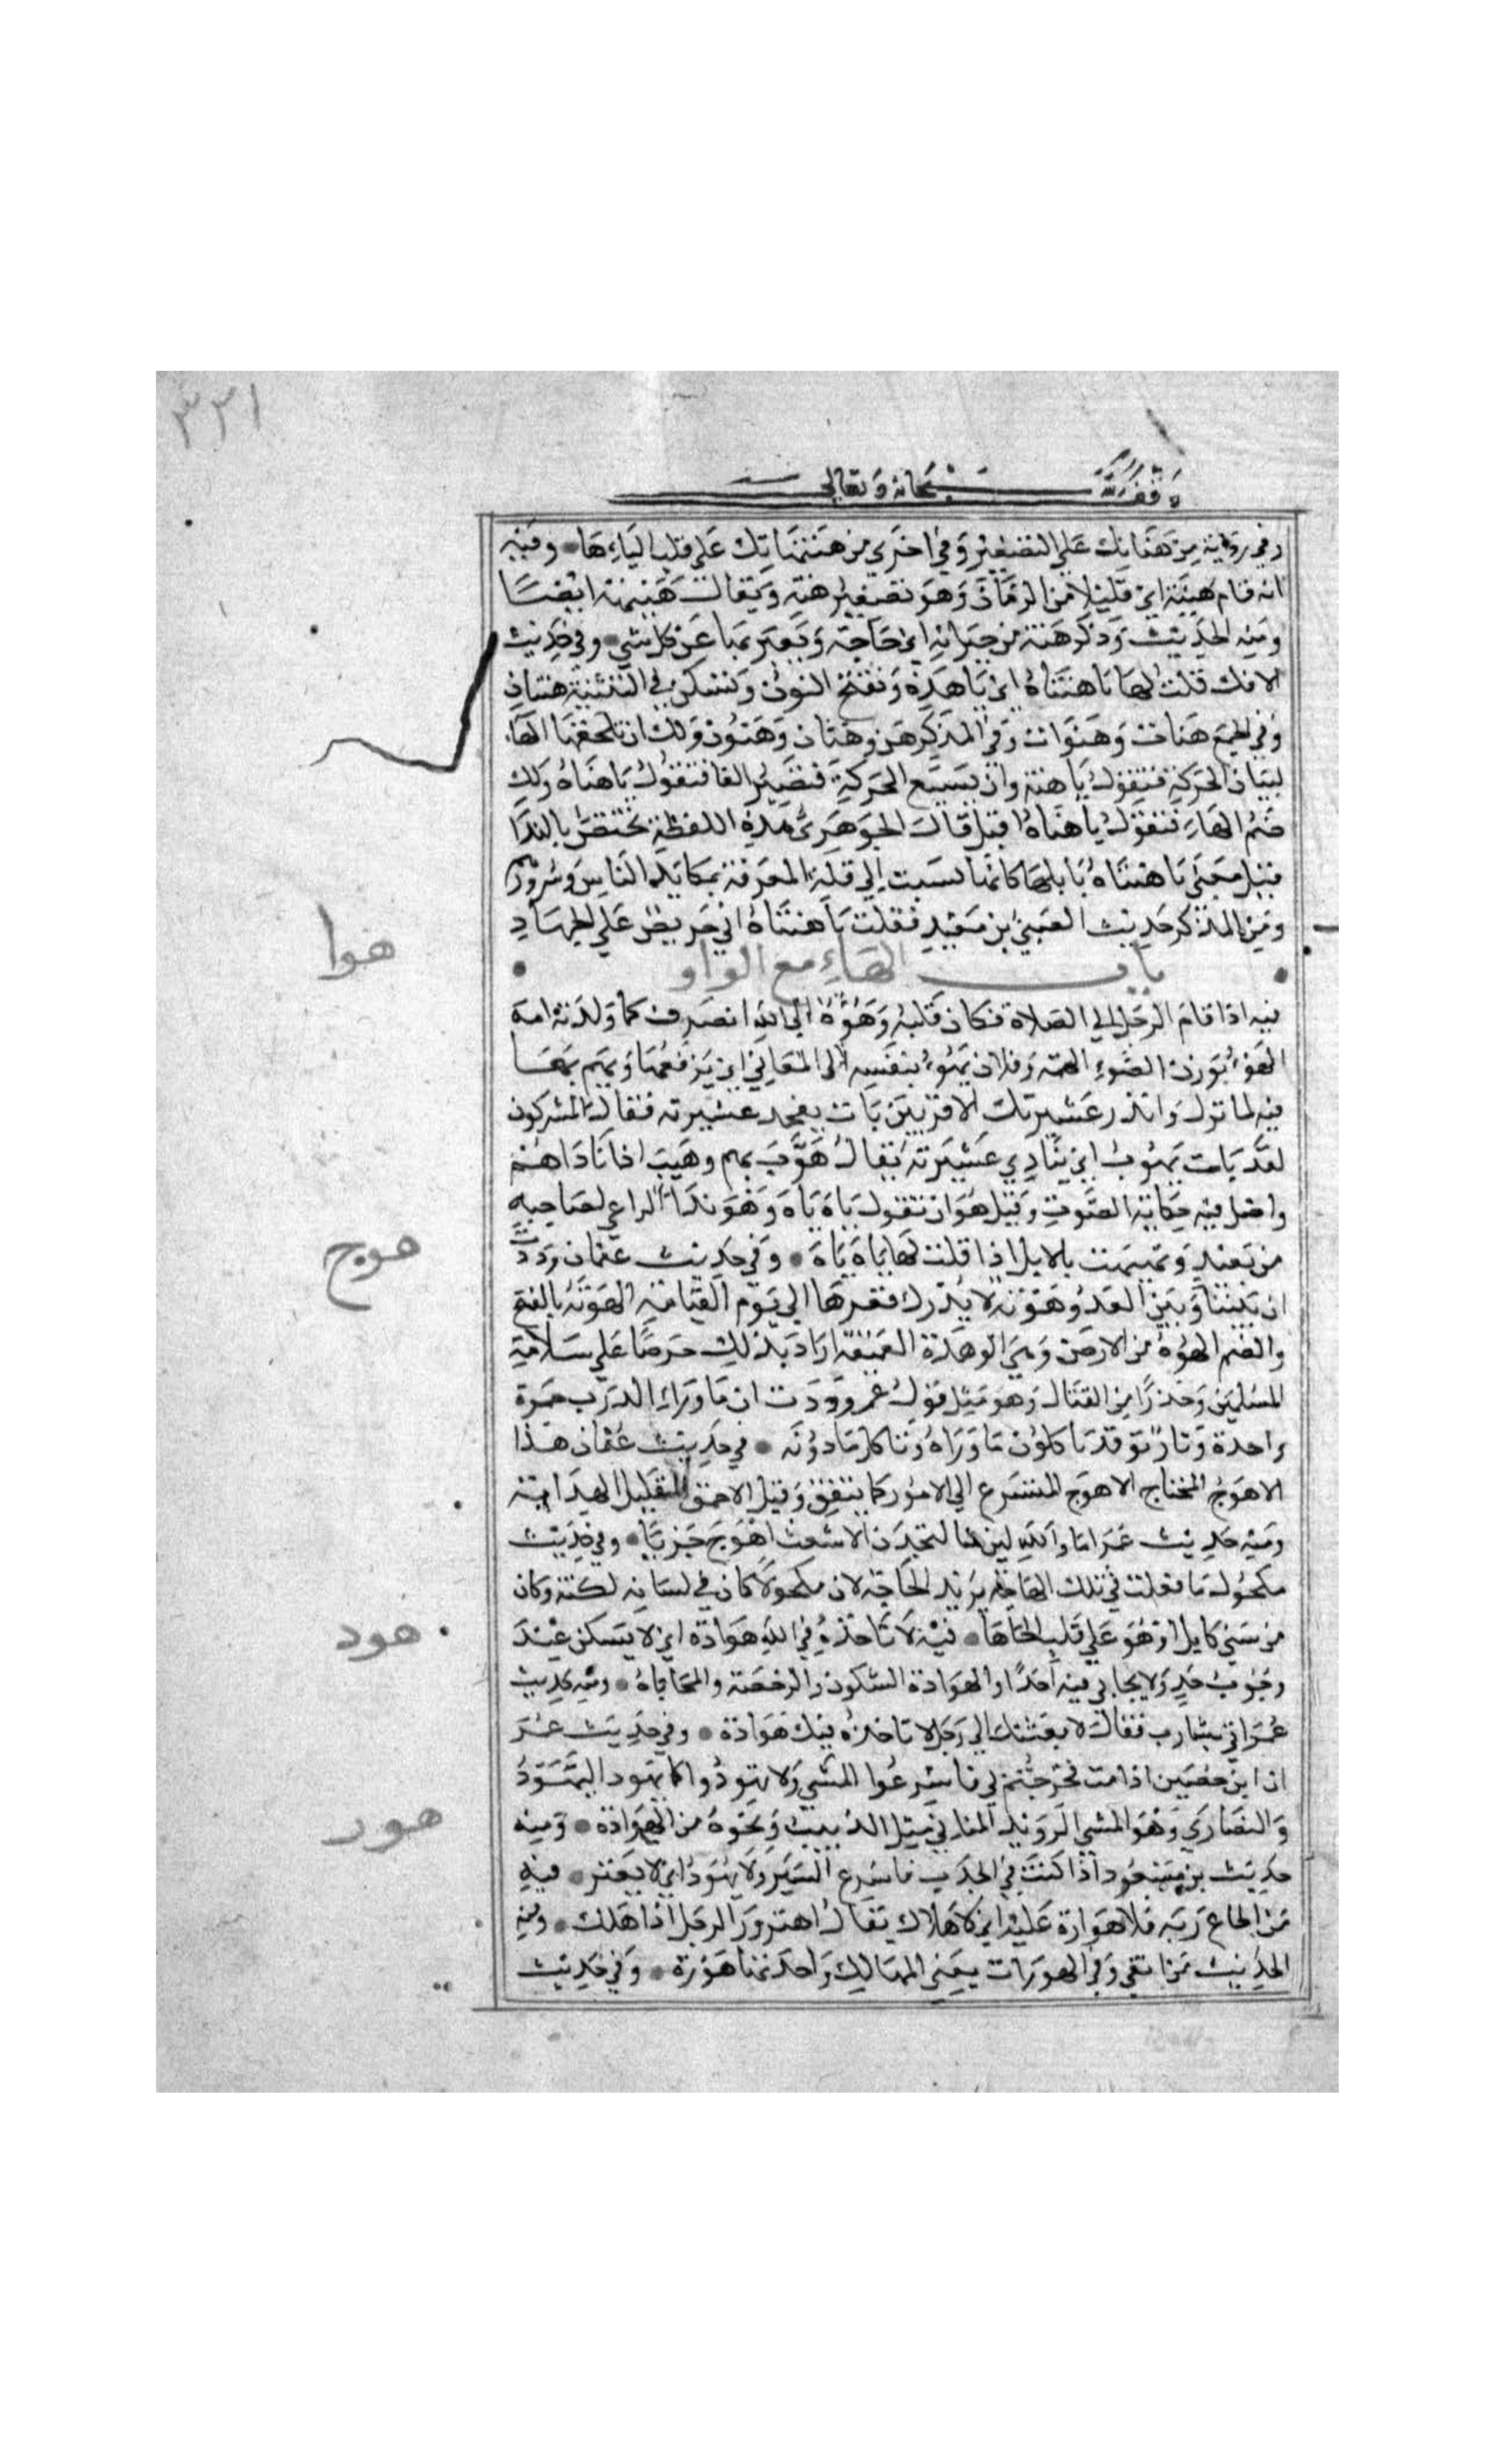 ٣٣١
وقف لله سبحانه وتعالى
وفي رواية من هناتك على التصغير وفي اخرى من هنيهاتك على قلب الياء ها ومنه
انه قام هنية اي قليلا من الزمان وهو تصغير هنة ويقال هنيهة ايضا
ومنه الحديث وذكر هنة من جيرانه اي حاجة ويعبر بها عن كل شي وفي حديث
الافك قلت لها يا هنتاه اي يا هذه وتفتح النون وتسكن في التثنية هنتان
وفي الجمع هنات وهنوات وفي المذكر هن وهنان وهنون ولك ان تلحقها الها
لبيان الحركة فتقول يا هنه وان تشبع الحركة فتصير الفا فتقول يا هناه ولك
ضم الهاء فتقول يا هناه اقبل قال الجوهري هذه اللفظة تختص بالندا
قيل معنى يا هنتاه يا بلها كانها نسبت الى قلة المعرفة بمكايد الناس وشرورهم
ومن المذكر حديث الصبي بن معبد فقلت يا هنتاه اني حريص على الجهاد
باب الهاء مع الواو
هوا
فيه اذا قام الرجل الى الصلاة فكان قلبه وهوؤه الى الله انصرف كما ولدته امه
الهوء بوزن الضوء الهمة وفلان يهوء بنفسه الى المعالي اي يرفعها ويهم بها
فيه لما نزل وانذر عشيرتك الاقربين بات يفخذ عشيرته فقال المشركون
لقد بات يهوت اي ينادي عشيرته يقال هوت بهم وهيت اذا ناداهم
واصل فيه حكاية الصوت وقيل هو ان تقول ياه ياه وهو ندا الراعي لصاحبه
من بعيد ويهيهت بالابل اذا قلت لها ياه ياه وفي حديث عثمان وددت
ان بيننا وبين العدو هوتة لا يدرك قعرها الى يوم القيامة الهوتة بالفتح
والضم الهوة من الارض وهي الوهدة العميقة اراد بذلك حرصا على سلامة
المسلمين وحذرا من القتال وهو مثل قول عمر وددت ان ما وراء الدرب جمرة
واحدة ونار توقد ياكلون ما وراه وناكل ما دونه في حديث عثمان هذا
هوج
الاهوج المتسرع الى الامور كما يتفق وقيل الاحمق القليل الهداية
ومنه حديث عمر اما والله لين لتجدن الاشعث اهوج جريا وفي حديث
مكحول ما فعلت في تلك الهاجة يريد الحاجة لان مكحولا كان في لسانه لكنة وكان
من سبي كابل او هو على قلب الحا ها فيه لا تاخذه في الله هوادة اي لا يسكن عند
هود
وجوب حد ولا يحابي فيه احدا والهوادة السكون والرخصة والمحاباة ومنه حديث
عمر اتي بشارب فقال لابعثنك الى رجل لا تاخذه فيك هوادة وفي حديث عمر
ان ابن حصين اذا مت فخرجتم بي فاسرعوا المشي ولا تهودوا كما تهود اليهود
والنصارى وهو المشي الرويد المتاني مثل الدبيب ونحوه من الهوادة ومنه
حديث بن مسعود اذا كنت في الجدب فاسرع السير ولا تهود اي لا تفتر فيه
هور
من اطاع ربه فلا هوارة عليه اي لا هلاك يقال اهتور الرجل اذا هلك ومنه
الحديث من اتقى وقي الهورات يعني المهالك واحدتها هورة وفي حديث